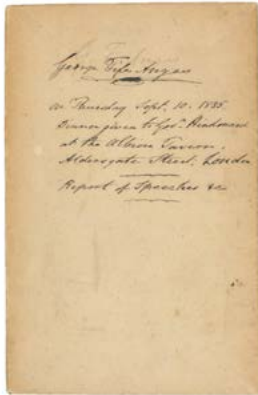 George Fife Angas
On Thursday Sept. 10. 1835
Dinner given to Govr. Hindmarsh
at the Albion Tavern,
Aldersgate Street, London
Report of Speeches &c